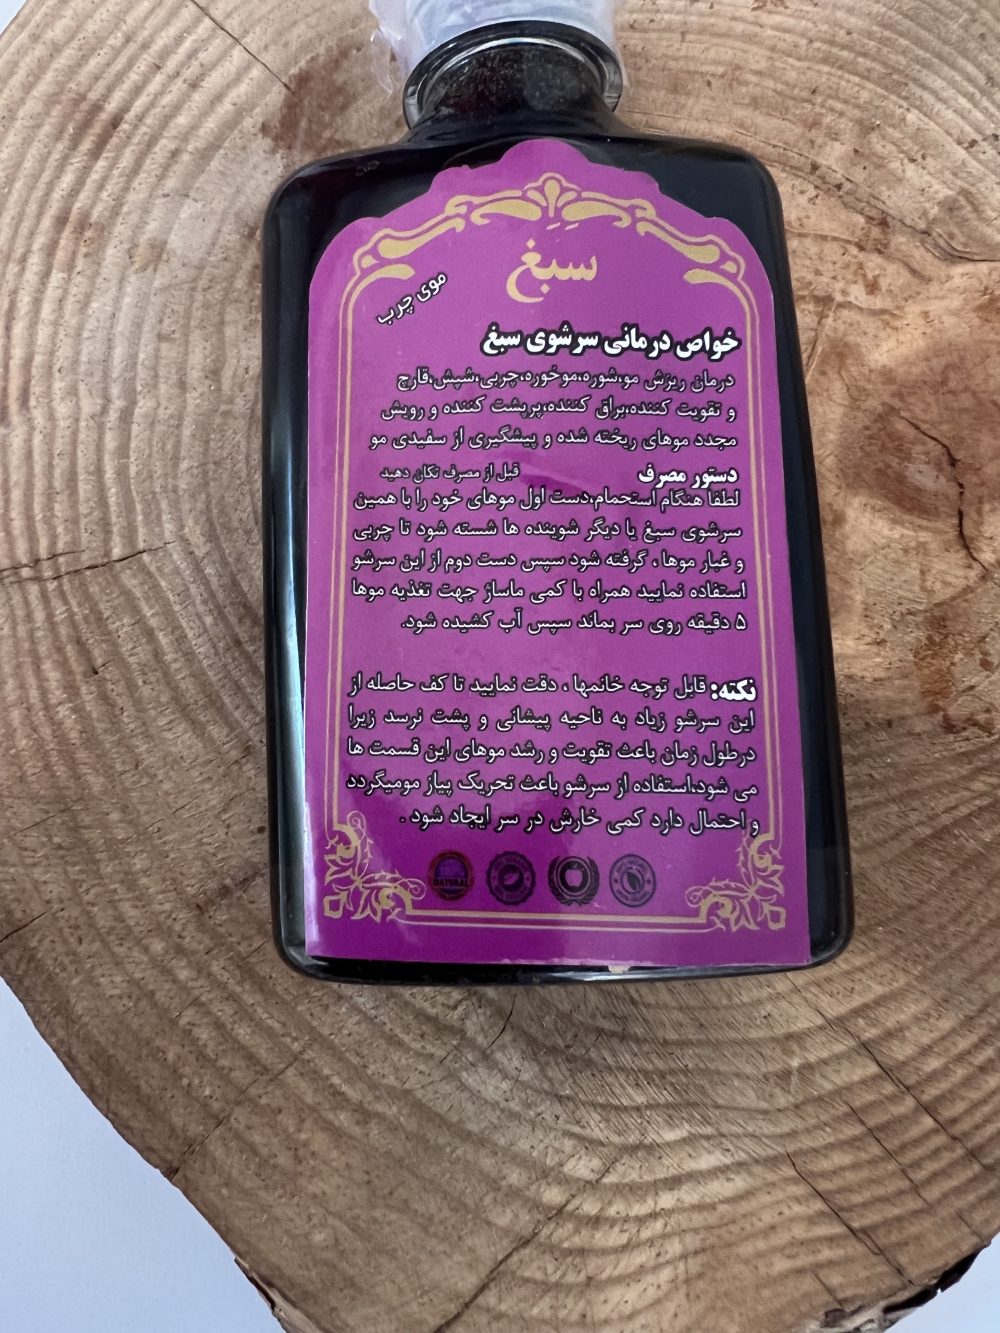 سِبِغ
موی چرب
خواص درمانی سرشوی سبغ
درمان ریزش مو،شوره،موخوره،چربی،شپش،قارچ
و تقویت کننده،براق کننده،پرپشت کننده و رویش
مجدد موهای ریخته شده و پیشگیری از سفیدی مو
دستور مصرف قبل از مصرف تکان دهید
لطفا هنگام استحمام،دست اول موهای خود را با همین
سرشوی سبغ یا دیگر شوینده ها شسته شود تا چربی
و غبار موها ، گرفته شود سپس دست دوم از این سرشو
استفاده نمایید همراه با کمی ماساژ جهت تغذیه موها
۵ دقیقه روی سر بماند سپس آب کشیده شود.
نکته: قابل توجه خانمها ، دقت نمایید تا کف حاصله از
این سرشو زیاد به ناحیه پیشانی و پشت نرسد زیرا
درطول زمان باعث تقویت و رشد موهای این قسمت ها
می شود،استفاده از سرشو باعث تحریک پیاز مومیگردد
و احتمال دارد کمی خارش در سر ایجاد شود .
NATURAL